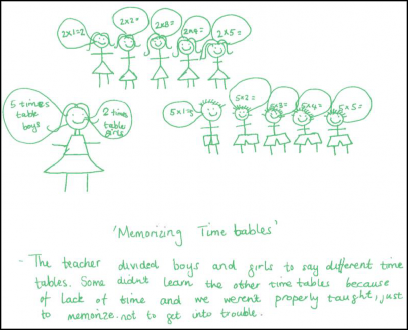 2x1=2
2x2=
2x3=
2x4=
2x5=
5 times
table
boys
2 times
table
girls
5x1=5
5x2=
5x3=
5x4=
5x5=
'Memorizing Time tables'
- The teacher divided boys and girls to say different time
tables. Some didn't learn the other time tables because
of lack of time and we weren't properly taught, just
to memorize. not to get into trouble.